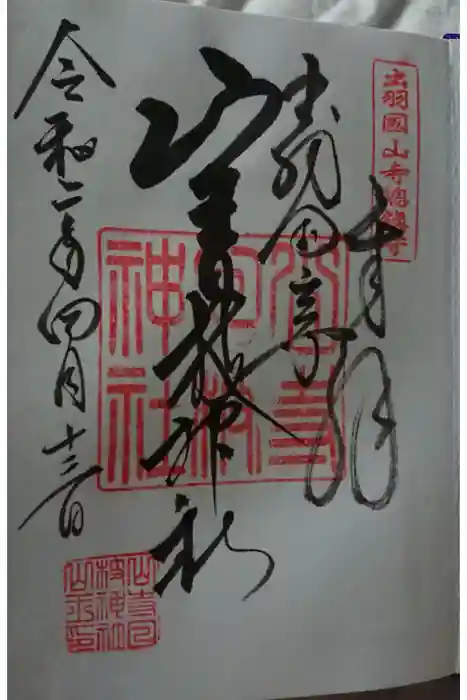 出羽國山寺總鎮守
奉拝
出羽国
山寺日枝神社
令和二年四月十三日
山寺
日枝
神社
山寺日
枝神社
山王印